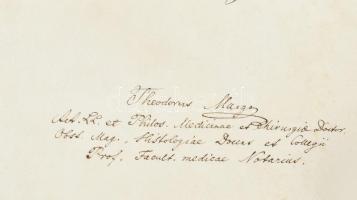 Theodorus Margo
Art. LL. et Philos. Medicinae et Chirurgiae Doctor.
Obst. Mag. Histologiae Docens et Collegii
Prof. Facult. medicae Notarius.